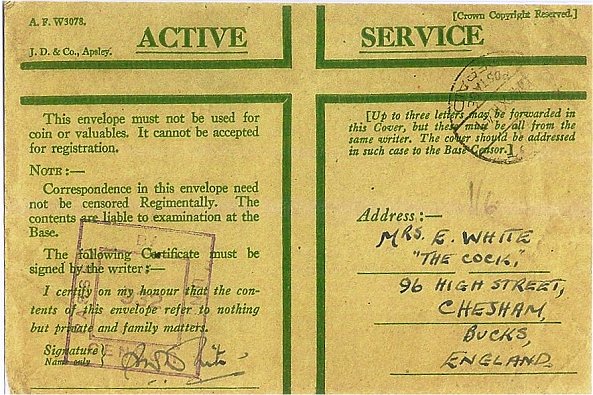 A. F. W3078.
[Crown Copyright Reserved.]
J. D. & Co., Apsley.
ACTIVE SERVICE
This envelope must not be used for
coin or valuables. It cannot be accepted
for registration.
NOTE:—
Correspondence in this envelope need
not be censored Regimentally. The
contents are liable to examination at the
Base.
The following Certificate must be
signed by the writer:—
I certify on my honour that the con-
tents of this envelope refer to nothing
but private and family matters.
Signature
Name only
[Up to three letters may be forwarded in
this Cover, but these must be all from the
same writer. The cover should be addressed
in such case to the Base Censor.]
116
Address:—
MRS. E. WHITE
"THE COCK,"
96 HIGH STREET,
CHESHAM,
BUCKS,
ENGLAND.